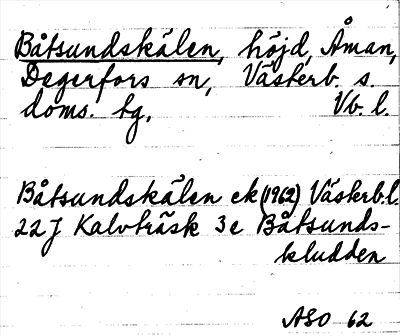 Båtsundskålen, höjd, Åman,
Degerfors sn, Västerb. s.
doms. tg, Vb. l.
Båtsundskålen ek (1962) Västerb. l.
22 J Kalvträsk 3 e Båtsunds-
kludden
ASO 62